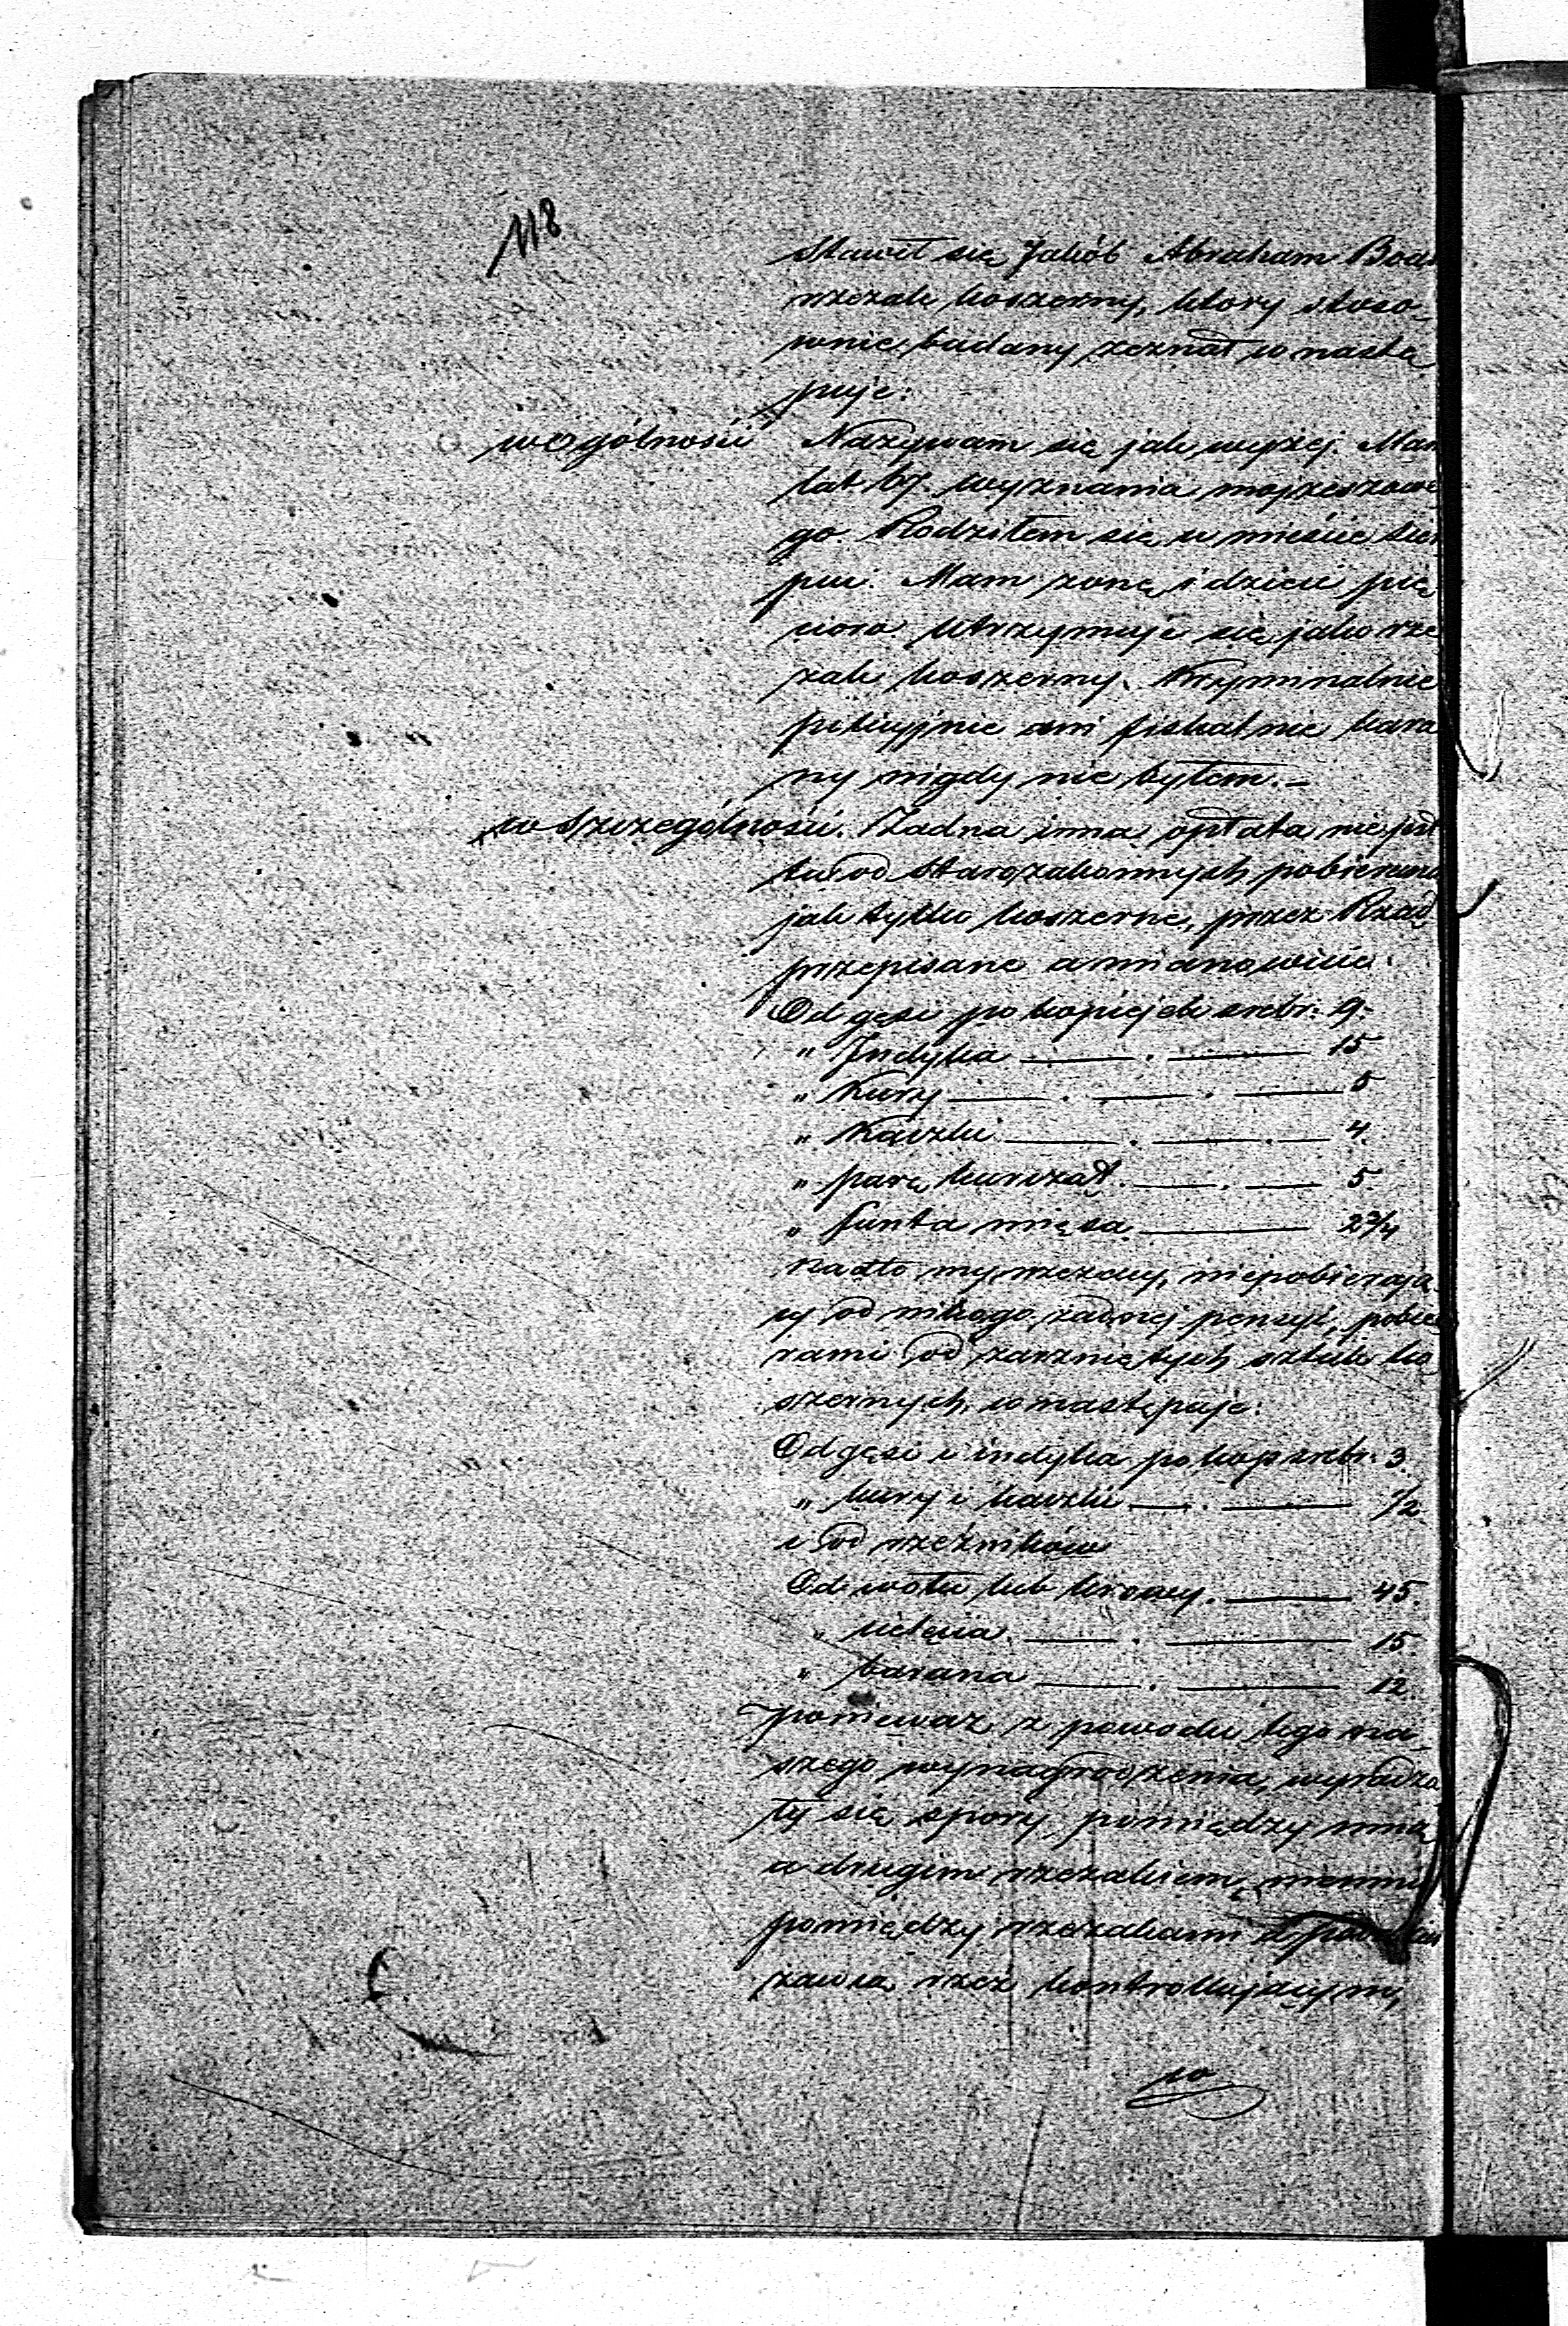 118
Stawił się Jakób Abraham
rzezak koszerny, ktory stoso-
wnie badany zeznał co nastę
puje:
w ogólności Nazywam się jak wyżej. Mam
lat 67. wyznania mojżeszowe
go Rodziłem się w mieście
Mam żonę i dzieci pię
cioro utrzymuje się jako rze
zak koszerny. Kryminalnie
policyjnie ani fiskalnie kara
ny nigdy nie byłem. –
w szczególności. Żadna inna opłata nie jest
tu od starozakonnych pobierana
jak tylko koszerne, przez Rząd
przepisane a mianowicie.
Od gęsi po kopiejek srebr: 9:
" Indyka 15
" Kury 5
" Kaczki 4.
" parę kurcząt. 5
" funta mięsa 2 3/4
Nadto my rzezacy, niepobierają
cy od nikogo żadnej pensyi, pobie
rami od zarzniętych sztuk ko
szernych, co następuje:
Od gęsi i indyka po kop srebr: 3.
" kury i kaczki 1/2
i od rzeźników
Od wołu lub krowy. 45.
" cielęcia. 15
" barana 12.
ponieważ z powodu tego na
szego wynagrodzenia, wyradza
ły się spory pomiędzy mną
a drugim rzezakiem,
pomiędzy rzezakami a
zawsze rzeź kontrollującym,
po